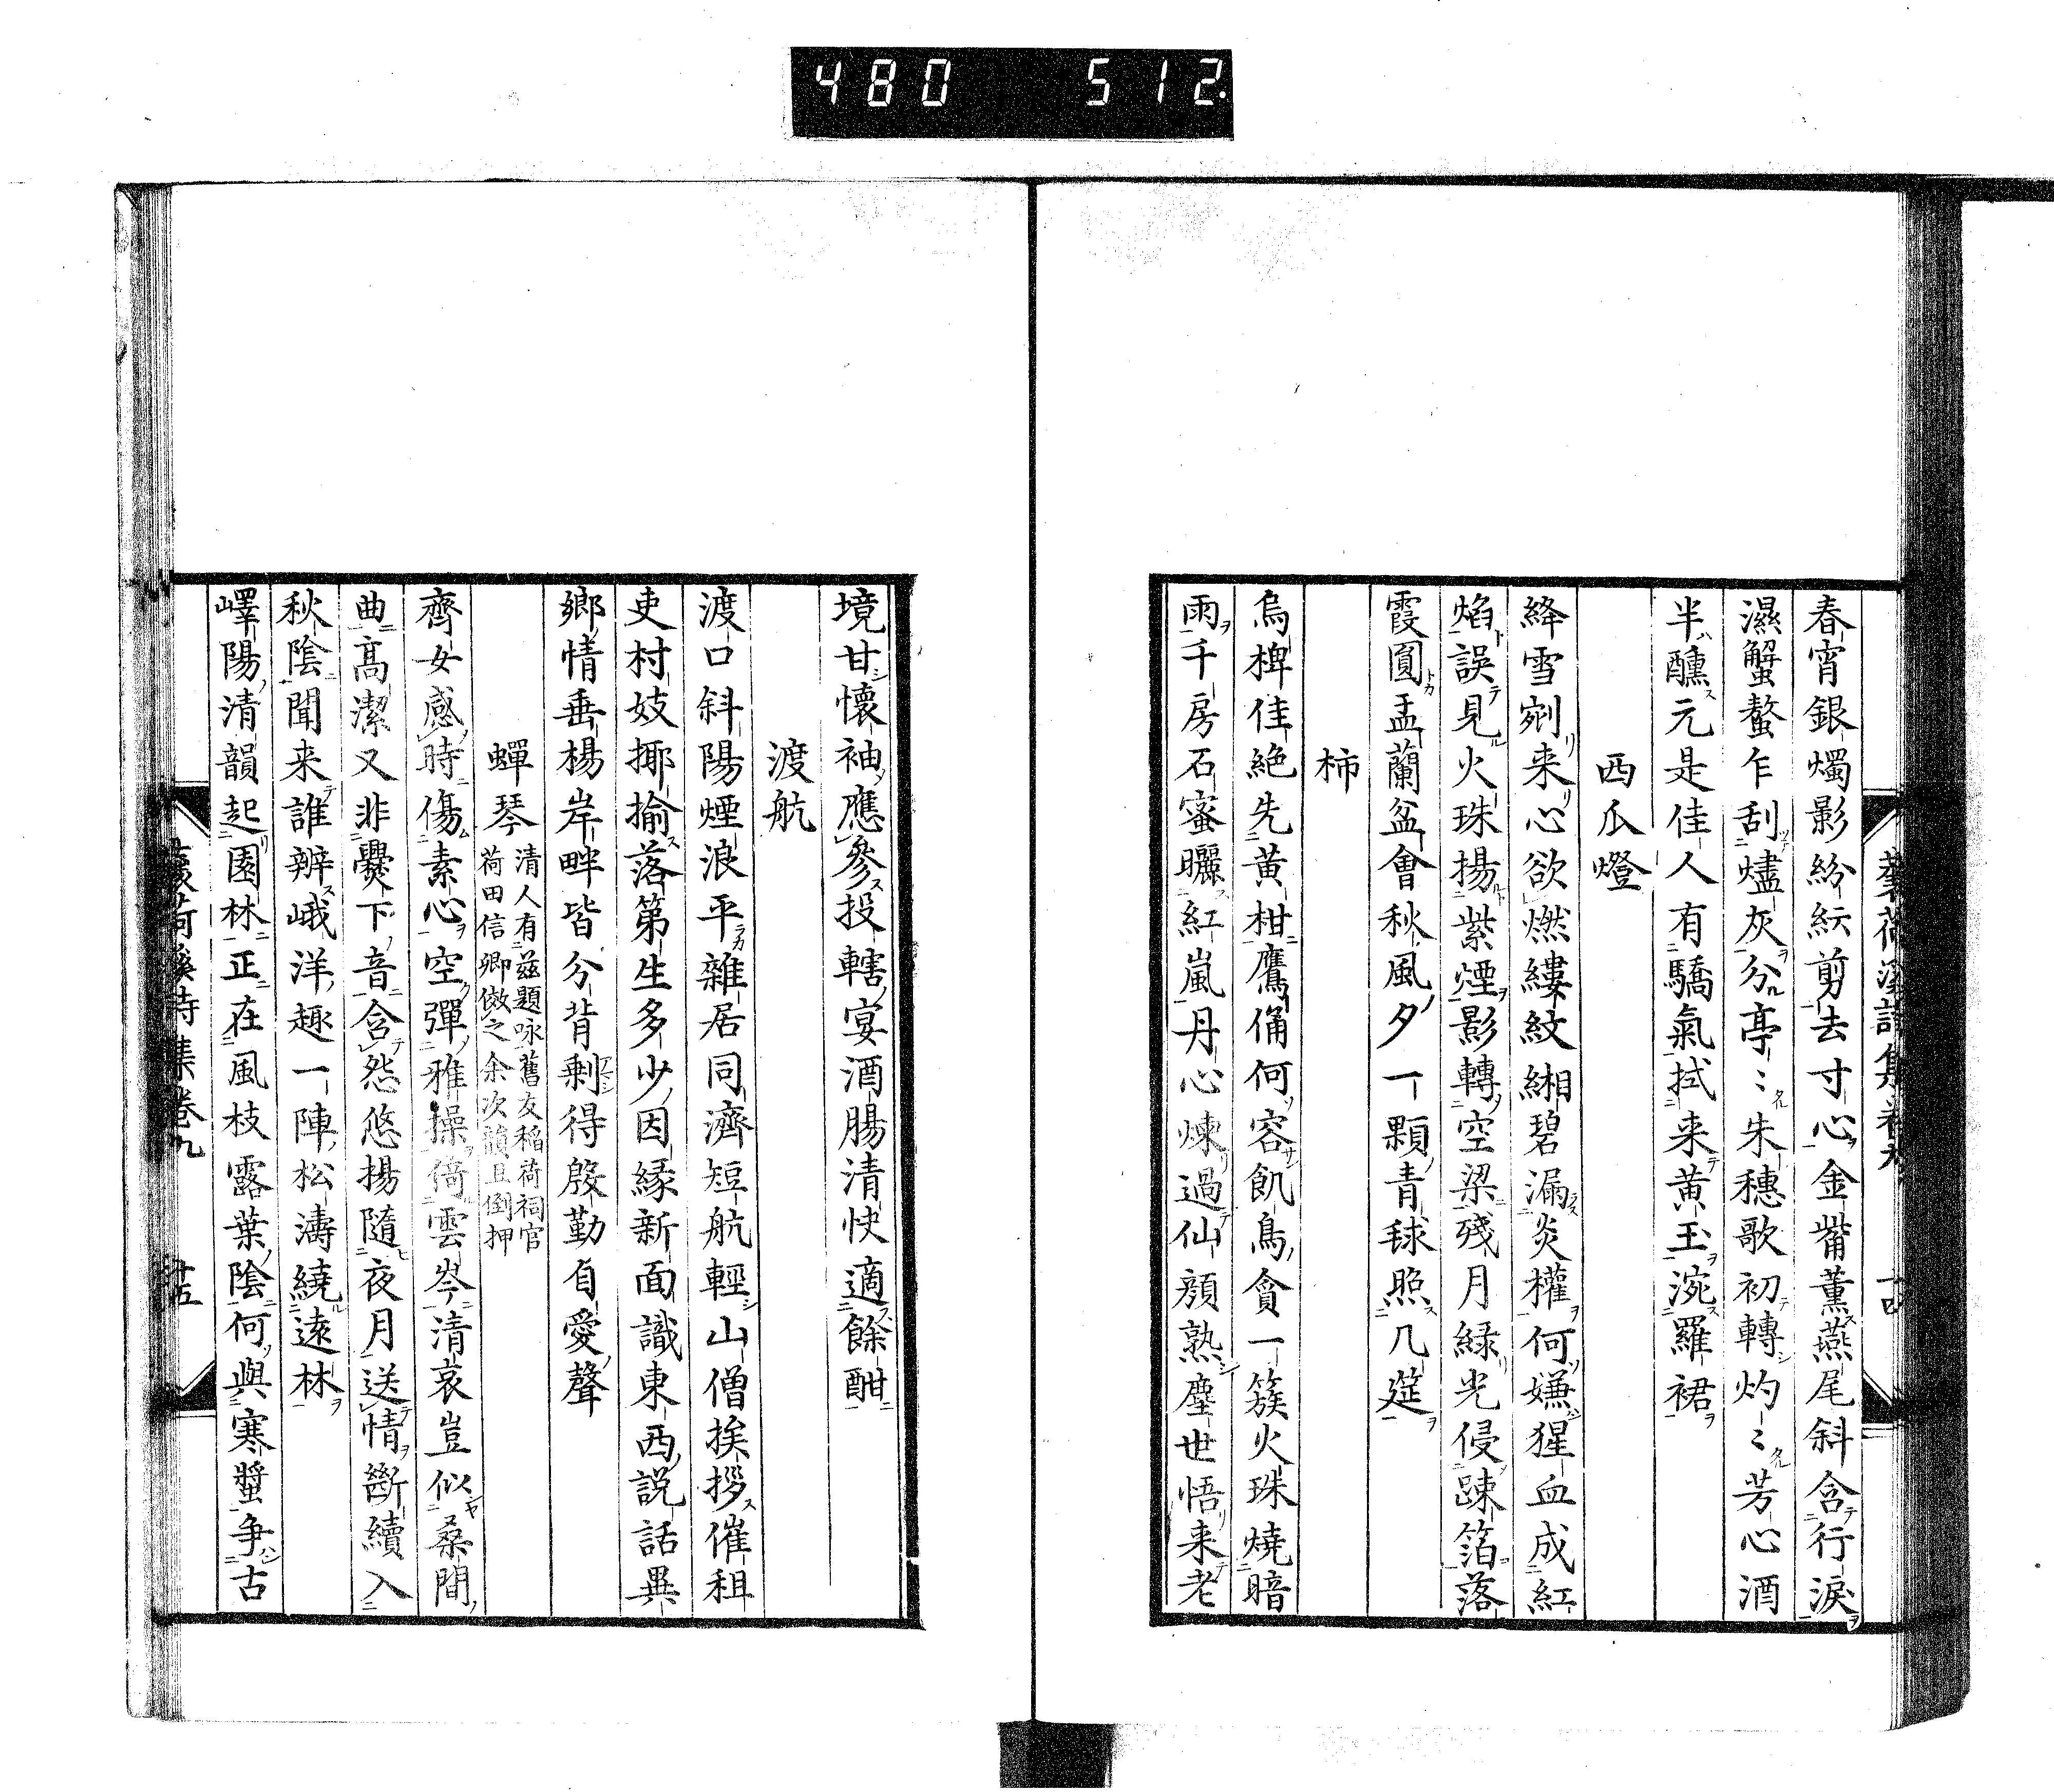 480 512.
春宵銀燭影紛紜剪去寸心金觜薫燕尾斜含行淚
濕蟹螯乍刮燼灰分亭〻朱穗歌初轉灼〻芳心酒
半醺元是佳人有驕氣拭来黄玉涴羅裙
西瓜燈
絳雪剜来心欲燃縷紋緗碧漏炎權何嫌猩血成紅
焰誤見火珠揚紫煙影轉空梁殘月緑光侵踈箔落
霞圓盂蘭盆會秋風夕一顆青毬照几筵
柿
烏椑佳絶先黄柑鷹俑何容飢鳥貪一簇火珠燒暗
雨千房石蜜曬紅嵐丹心煉過仙顔熟塵世悟来老
境甘懷袖應參投轄宴酒腸清快適餘酣
渡航
渡口斜陽煙浪平雜居同濟短航輕山僧挨拶催租
吏村妓揶揄落第生多少因縁新面識東西説話異
鄉情垂楊岸畔皆分背剩得慇勤自愛聲
蟬琴 清人有茲題咏舊友稲荷祠官
荷田信卿倣之余次韻且倒押
齊女感時傷素心空彈雅操倚雲岑清哀豈似桑間
曲高潔又非爨下音含怨悠揚隨夜月送情斷續入
秋陰聞来誰辨峨洋趣一陣松濤繞遠林
嶧陽清韻起園林正在風枝露葉陰何與寒螿争古
蘐荷溪詩集卷九 十五